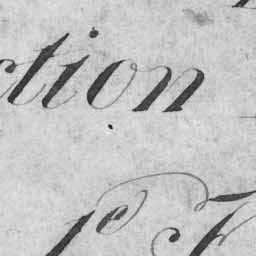 ction
1e F